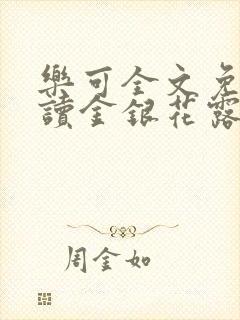 樂可全文免
讀金銀花露
周金如